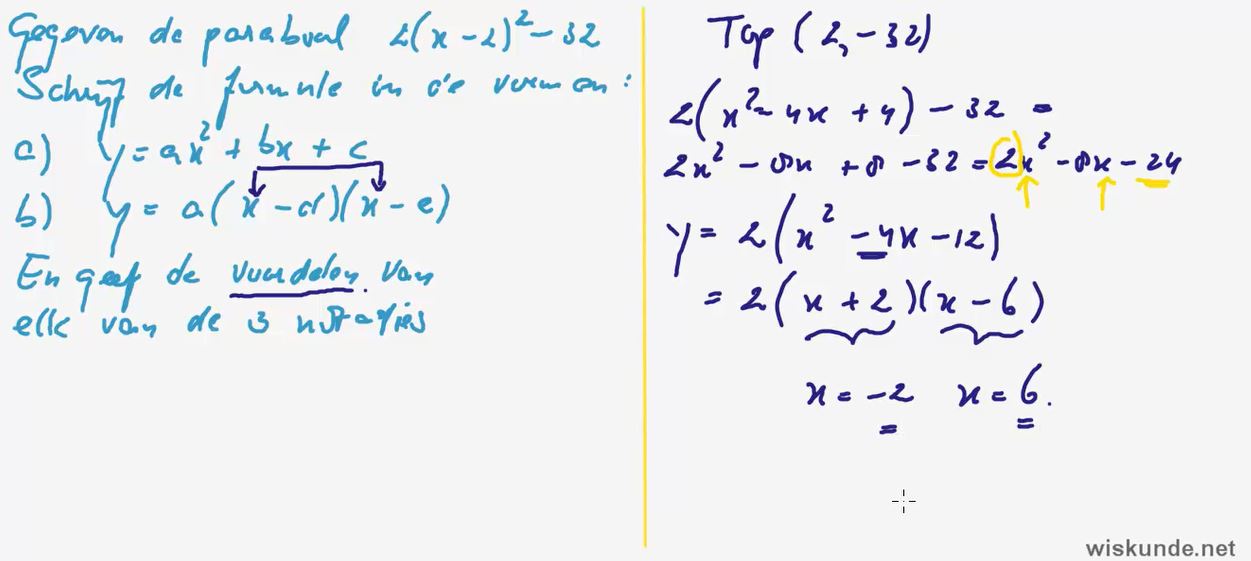 Gegeven de parabool 2(x - 2)² - 32
Schrijf de formule in de vormen:
a) y = ax² + bx + c
b) y = a(x - d)(x - e)
En geef de voordelen van
elk van de 3 notaties
Top (2, -32)
2(x² - 4x + 4) - 32 =
2x² - 8x + 8 - 32 = 2x² - 8x - 24
y = 2(x² - 4x - 12)
= 2(x + 2)(x - 6)
x = -2 x = 6.
wiskunde.net